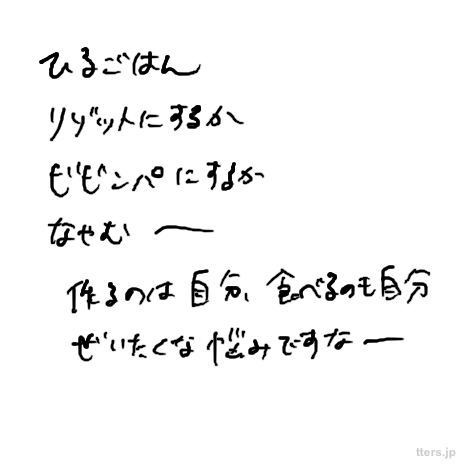 ひるごはん
リゾットにするか
ビビンパにするか
なやむ ー
作るのは自分、食べるのも自分
ぜいたくな悩みですなー
tters.jp